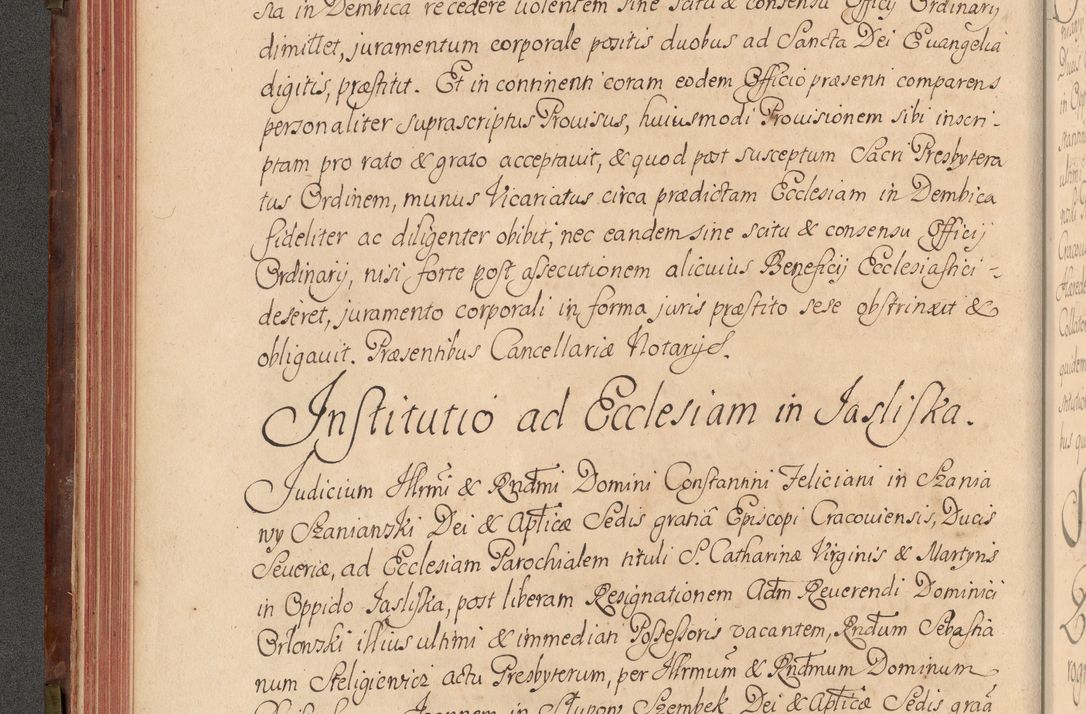 sia in Dembica recedere uolentem sine scitu & consensu Officij Ordinarij
dimittet, juramentum corporale positis duobus ad Sancta Dei Euangelia
digitis, præstitit. Et in continenti coram eodem Officio præsenti comparens
personaliter suprascriptus Prouisus, huiusmodi Prouisionem sibi inscri-
ptam pro rato & grato acceptauit, & quod post susceptum Sacri Presbytera
tus Ordinem, munus Vicariatus circa prædictam Ecclesiam in Dembica
fideliter ac diligenter obibit, nec eandem sine scitu & consensu Officij
Ordinarij, nisi forte post assecutionem alicuius Beneficij Ecclesiastici -
deseret, juramento corporali in forma juris præstito sese obstrinxit &
obligauit. Præsentibus Cancellariæ Notarijs.
Institutio ad Ecclesiam in Jasliska.
Judicium Illrmi & Rndmi Domini Constantini Feliciani in Szania
wy Szaniawski Dei & Aplicæ Sedis gratiâ Episcopi Cracouiensis, Ducis
Seueriæ, ad Ecclesiam Parochialem tituli S. Catharinæ Virginis & Martyris
in Oppido Jasliska, post liberam Resignationem Adm Reuerendi Dominici
Orlowski illius ultimi & immediati Possessoris vacantem, Rndum Sebastia
num Steligiewicz actu Presbyterum, per Illrmum & Rndmum Dominum
Joannem in Slupow Szembek Dei & Aplicæ Sedis graâ